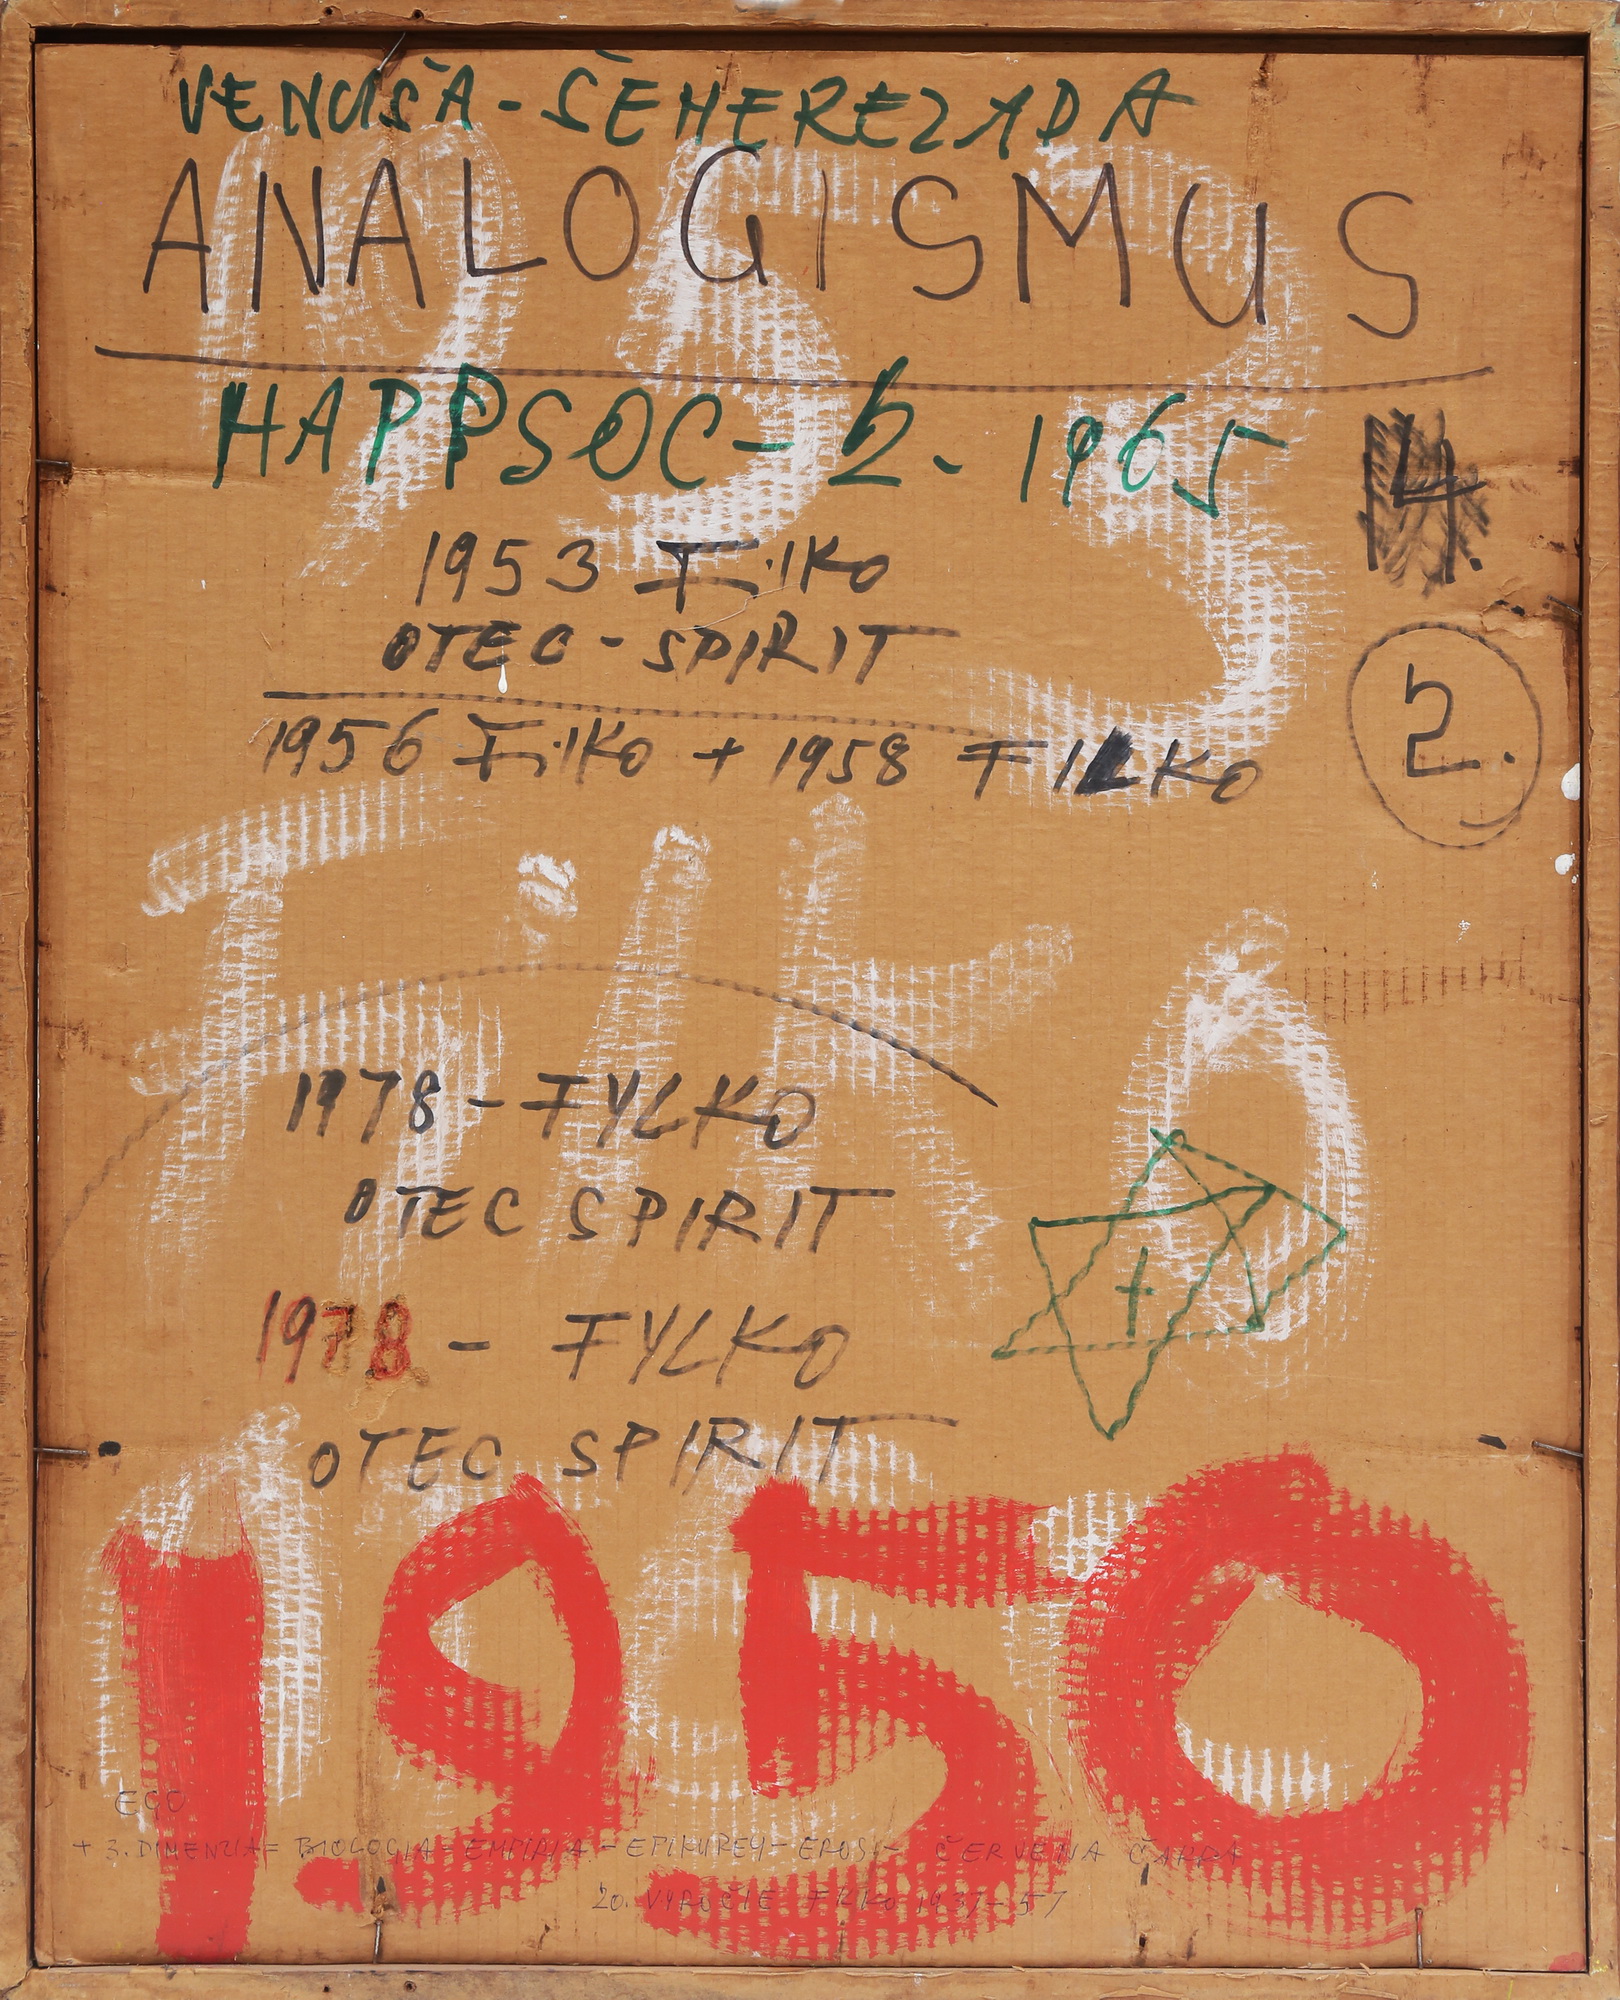 VENUŠA-ŠEHEREZADA
ANALOGISMUS
HAPPSOC-2-1965
14.
1953 FilKo
OTEC-SPIRIT
2.
1956 FilKo + 1958 FILKO
1953
FilKo
1978-FYLKO
OTEC SPIRIT
+
1978 - FYLKO
OTEC SPIRIT
1950
EGO
+ 3. DIMENZIA= BIOLOGIA-EMPIRIA-EPIKUREY-EROS- ČERVENA ČAKRA
20. VYROČIE 1937-57